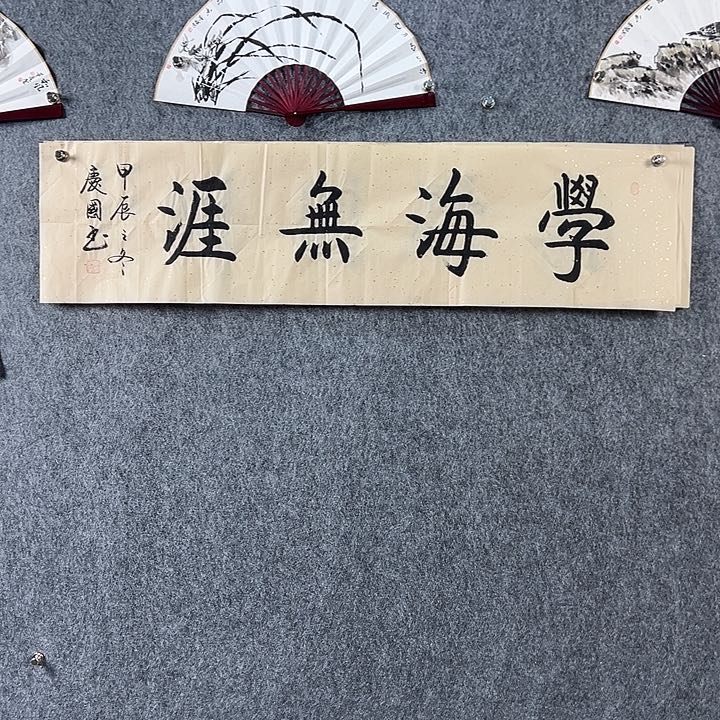 學海無涯
甲辰之冬
慶國書